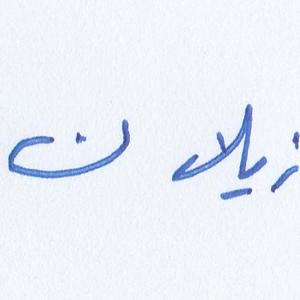 زيلان